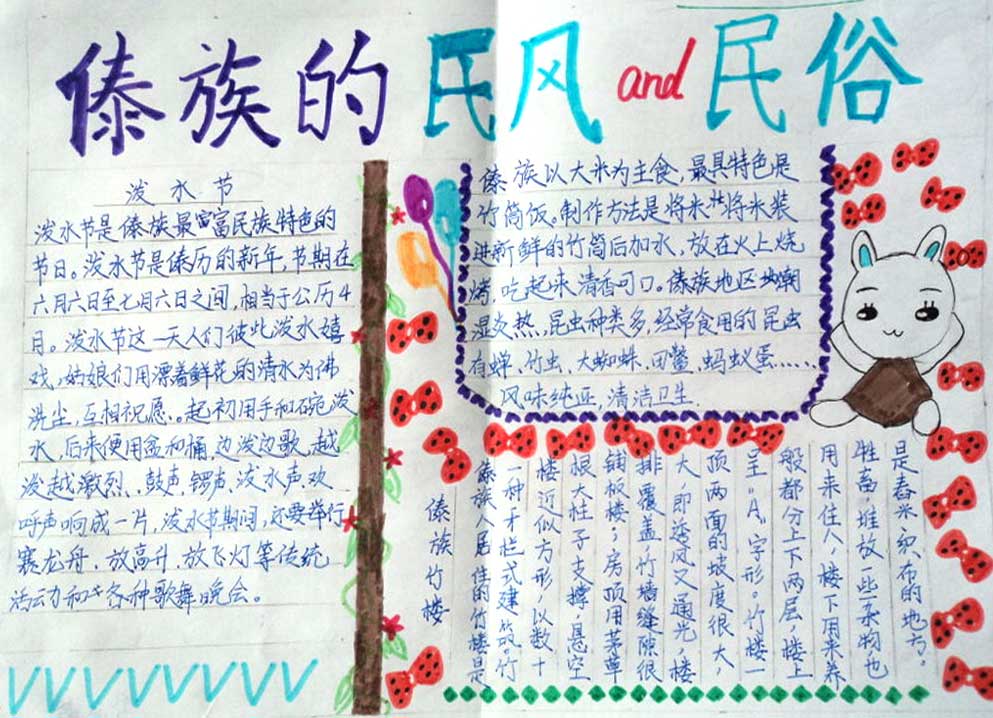 傣族的民风and民俗
泼水节
泼水节是傣族最富富民族特色的
节日。泼水节是傣历的新年,节期在
六月六日至七月六日之间,相当于公历4
月。泼水节这一天人们彼此泼水嬉
戏,姑娘们用漂着鲜花的清水为佛
洗尘,互相祝愿。起初用手和碗泼
水,后来便用盆和桶,边泼边歌,越
泼越激烈、鼓声、锣声、泼水声、欢
呼声响成一片,泼水节期间,还要举行
赛龙舟、放高升、放飞灯等传统
活动和各种歌舞晚会。
傣族以大米为主食,最具特色是
竹筒饭。制作方法是将米将米装
进新鲜的竹筒后加水,放在火上烧
烤,吃起来清香可口。傣族地区潮
湿炎热,昆虫种类多,经常食用的昆虫
有蝉、竹虫、大蜘蛛、田鳖、蚂蚁蛋......
风味纯正,清洁卫生.
傣族竹楼
傣族人居住的竹楼是
一种干栏式建筑。竹
楼近似方形,以数十
根大柱子支撑,悬空
铺板楼;房顶用茅草
排覆盖,竹墙缝隙很
大,即透风又通光,楼
顶两面的坡度很大,
呈"A"字形。竹楼一
般都分上下两层,楼上
用来住人,楼下用来养
牲畜,堆放一些杂物也
是舂米、织布的地方。